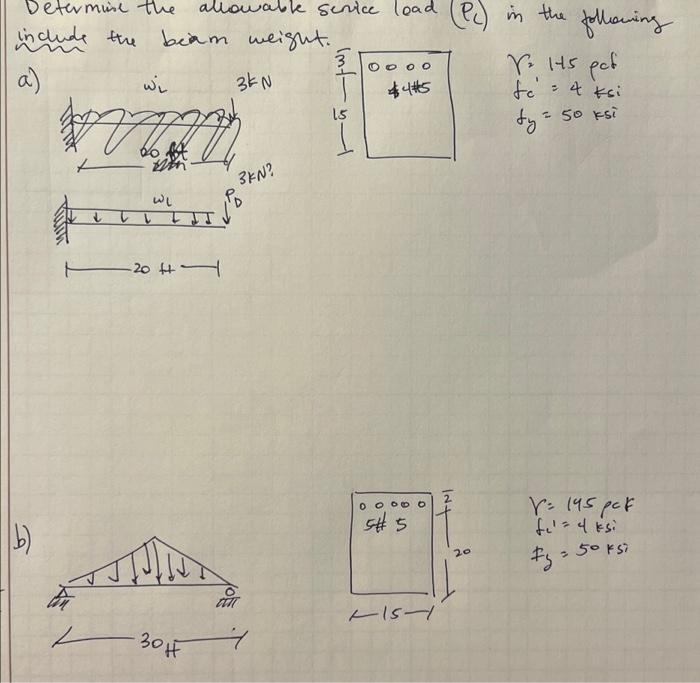 Determine the allowable service load (PL) in the following
include the beam weight.
a)
wL
3kN
20 ft
3kN?
wL
PD
20 ft
3
15
4#5
γ= 145 pcf
fc' = 4 ksi
fy = 50 ksi
b)
30 ft
5# 5
2
20
15
γ= 145 pcf
fc' = 4 ksi
fy = 50 ksi